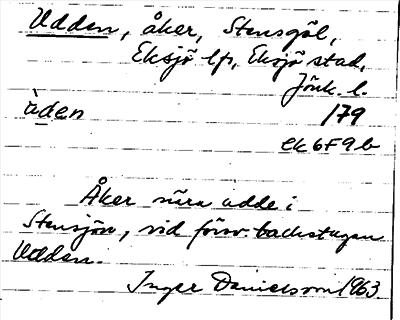 Udden, åker, Stensgöl,
Eksjö lfs, Eksjö stad,
Jönk. l.
ùden 179
ek 6F9b
Åker nära udde i
Stensjön, vid försv. backstugan
Udden.
Inger Danielsson 1963.